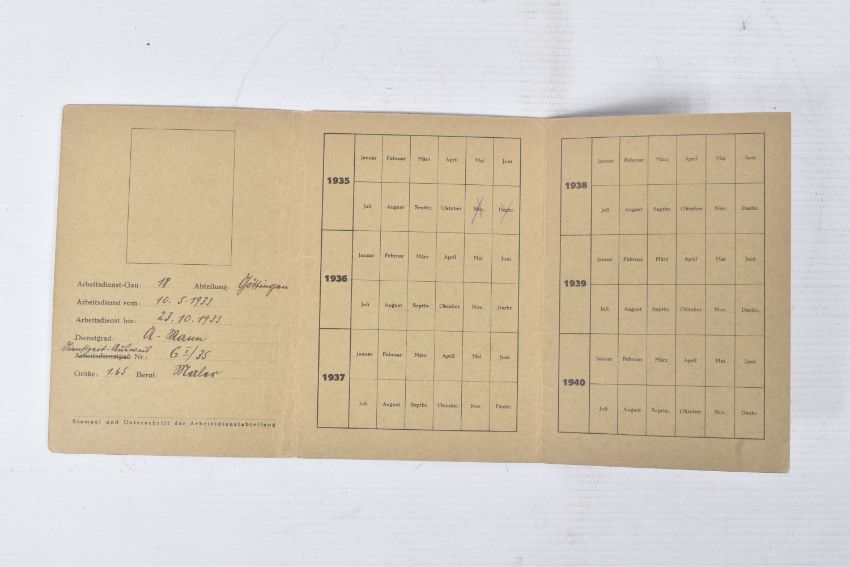 Arbeitsdienst-Gau: 18 Abteilung: Göttingen
Arbeitsdienst vom: 10.5.1933
Arbeitsdienst bis: 23.10.1933
Dienstgrad: A-Mann
Dienstzeit-Ausweis
Arbeitsdienstpaß Nr.: G I/35
Größe: 1.65 Beruf: Maler
Stempel und Unterschrift der Arbeitsdienstabteilung
1935
Januar Februar März April Mai Juni
Juli August Septbr. Oktober Nov. Dezbr.
1936
Januar Februar März April Mai Juni
Juli August Septbr. Oktober Nov. Dezbr.
1937
Januar Februar März April Mai Juni
Juli August Septbr. Oktober Nov. Dezbr.
1938
Januar Februar März April Mai Juni
Juli August Septbr. Oktober Nov. Dezbr.
1939
Januar Februar März April Mai Juni
Juli August Septbr. Oktober Nov. Dezbr.
1940
Januar Februar März April Mai Juni
Juli August Septbr. Oktober Nov. Dezbr.